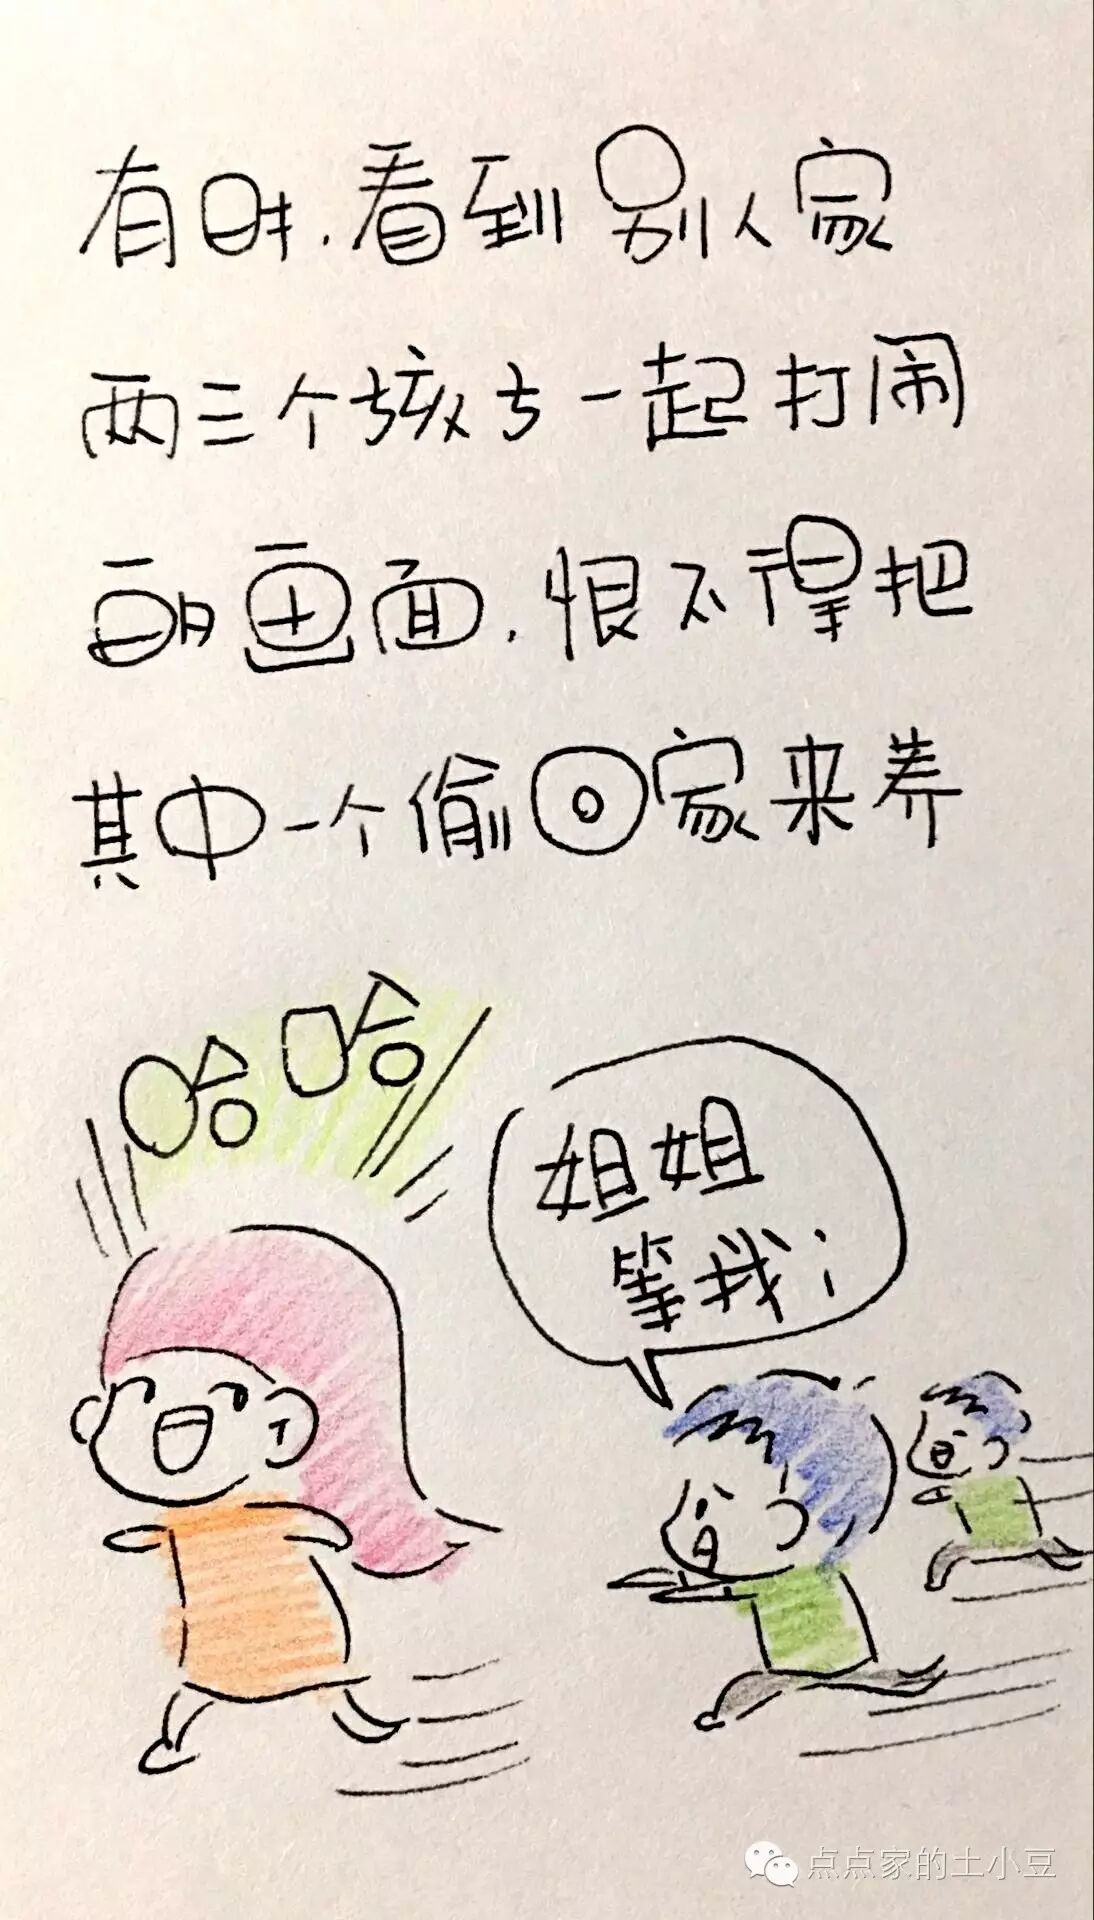 有时.看到别人家
两三个孩子一起打闹
的画面.恨不得把
其中一个偷回家来养
哈哈
姐姐
等我;
点点家的土小豆